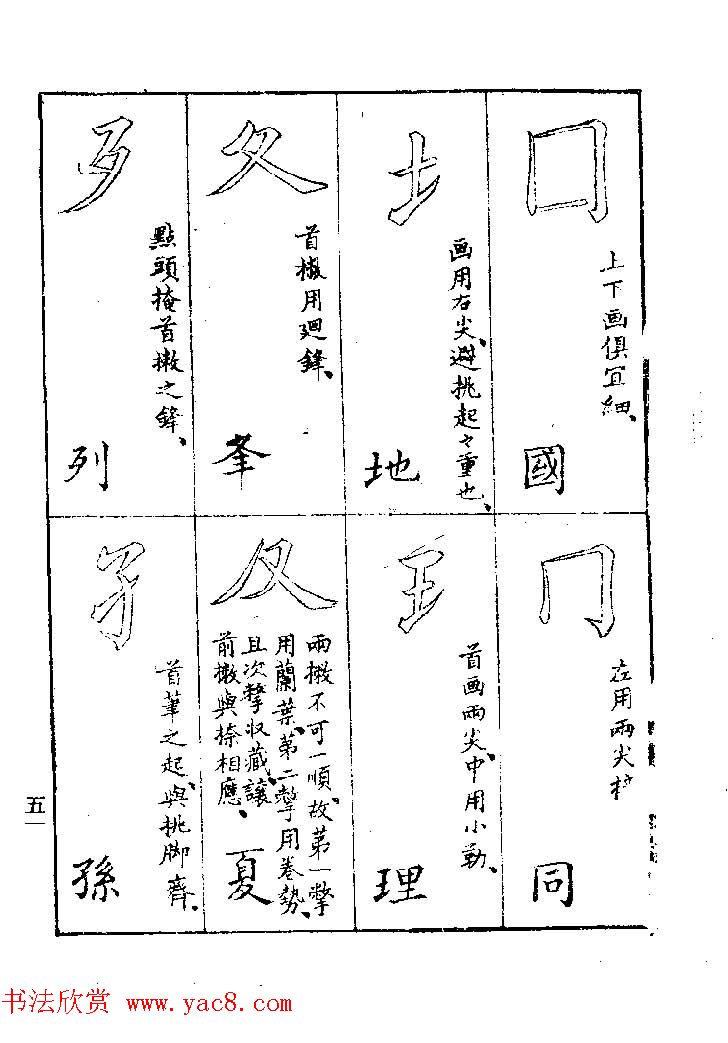 冂
上下画俱宜細、
國
土
画用右尖、避挑起之重也、
地
夂
首撇用廻鋒、
峯
歹
點頭掩首撇之鋒、
列
冂
左用兩尖
同
王
首画兩尖、中用小勒、
理
夂
兩撇不可一順、故第一撆
用蘭葉、第二撆用卷勢、
且次撆收藏、讓
前撇與捺相應、
夏
子
首筆之起、與挑脚齊、
孫
五一
书法欣赏 www.yac8.com